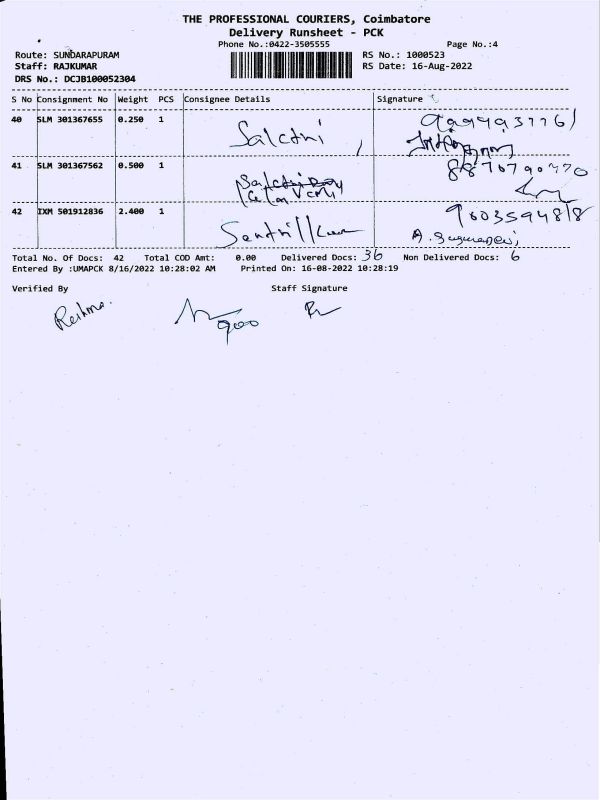 THE PROFESSIONAL COURIERS, Coimbatore
Delivery Runsheet - PCK
Phone No.:0422-3505555
Page No.:4
Route: SUNDARAPURAM
RS No.: 1000523
Staff: RAJKUMAR
RS Date: 16-Aug-2022
DRS No.: DCJB100052304
S No Consignment No Weight PCS Consignee Details Signature
40 SLM 301367655 0.250 1
41 SLM 301367562 0.500 1
8870790770
42 IXM 501912836 2.400 1
9603594818
Total No. Of Docs: 42 Total COD Amt: 0.00 Delivered Docs: 36 Non Delivered Docs: 6
Entered By :UMAPCK 8/16/2022 10:28:02 AM Printed On: 16-08-2022 10:28:19
Verified By Staff Signature